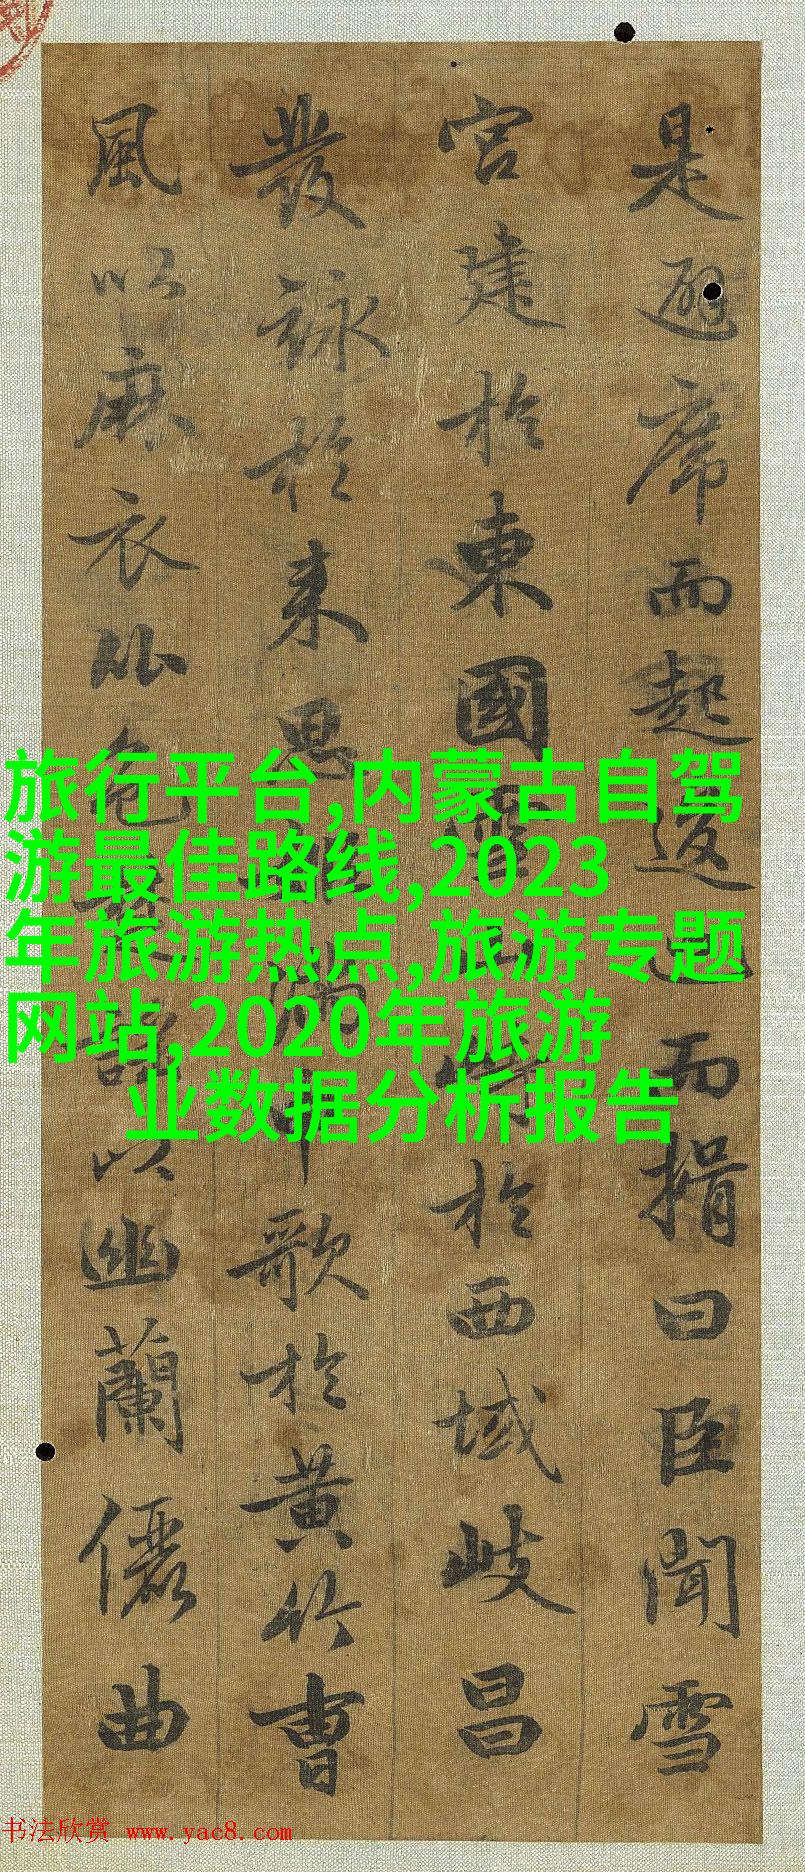 是避席而起逡巡而揖曰臣聞雪
宮建於東國雪山峙於西域岐昌
發詠於來思姬滿申歌於黃竹曹
風以麻衣比色楚謠以幽蘭儷曲
旅行平台,内蒙古自驾
游最佳路线,2023
年旅游热点,旅游专题
网站,2020年旅游
业数据分析报告
书法欣赏 www.yac8.com